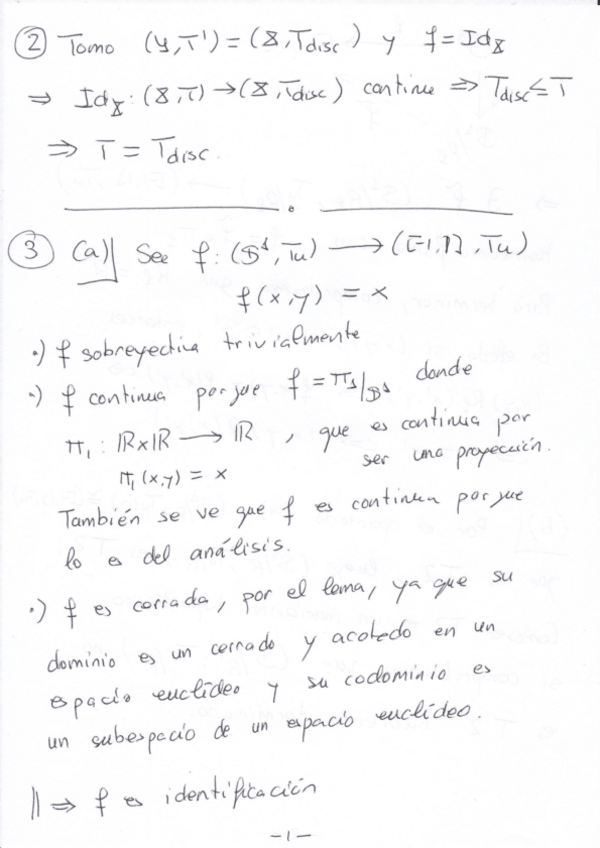 ② Tomo (Y,T') = (X,T_disc) y f = Id_X
⇒ Id_X : (X,T) → (X,T_disc) continua ⇒ T_disc ≤ T
⇒ T = T_disc.
③ (a) Sea f : (S¹, Tu) → ([-1,1], Tu)
f(x,y) = x
·) f sobreyectiva trivialmente
·) f continua porque f = π₁|S¹ donde
π₁ : ℝxℝ → ℝ , que es continua por
π₁(x,y) = x ser una proyección.
También se ve que f es continua porque
lo es del análisis.
·) f es cerrada, por el lema, ya que su
dominio es un cerrado y acotado en un
espacio euclídeo y su codominio es
un subespacio de un espacio euclídeo.
|| ⇒ f es identificación
-1-